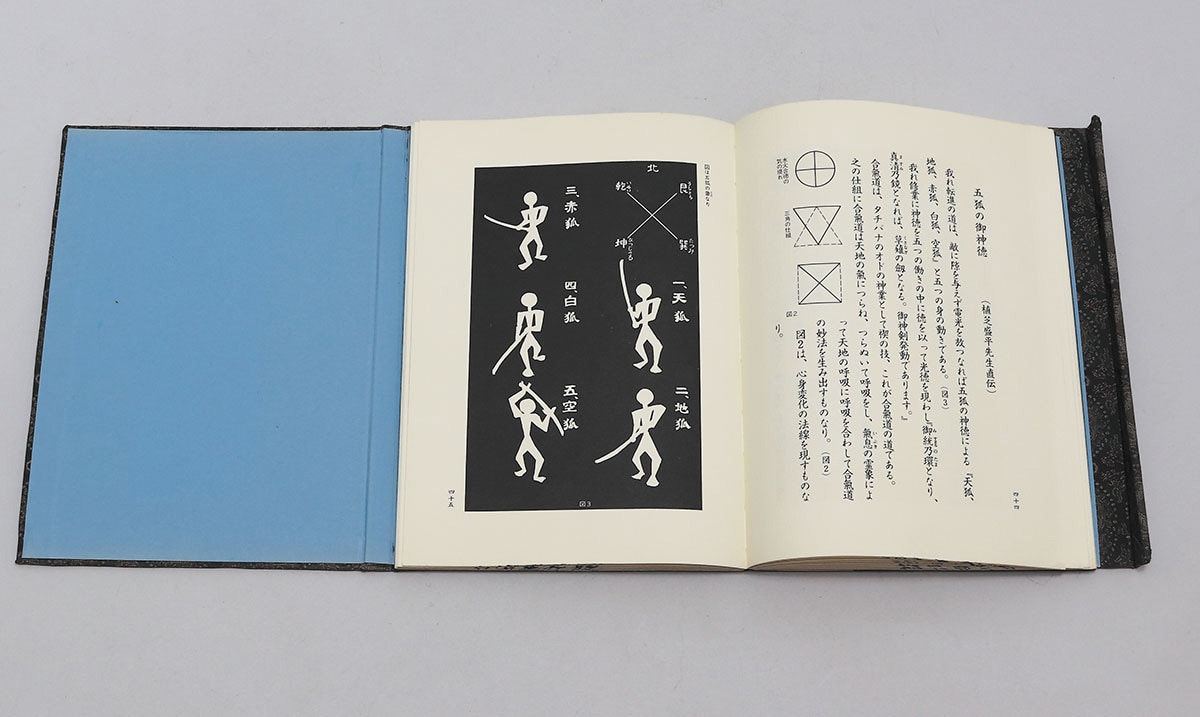 五狐の御神徳
(植芝盛平先生直伝)
我れ転進の道は、敵に隙を与えず電光を放つなれば五狐の神徳による『天狐、
地狐、赤狐、白狐、空狐』と五つの身の動きである。(図3)
我れ修業に神徳を五つの働きの中に徳を以って光徳を現わし『御統乃環となり、
真清乃鏡となれば、草薙の劔となる。御神剣発動であります。』
合氣道は、タチバナのオドの神業として禊の技、これが合氣道の道である。
之の仕組に合氣道は天地の氣につらね、つらぬいて呼吸をし、氣息の霊象によ
って天地の呼吸に呼吸を合わして合氣道
の妙法を生み出すものなり。(図2)
図2は、心身変化の法線を現すものな
り。
水火合徳の
気の現れ
三角の仕組
図2
四十四
図は五狐の象なり
北
艮
乾
巽
坤
一、天狐
二、地狐
三、赤狐
四、白狐
五、空狐
図3
四十五